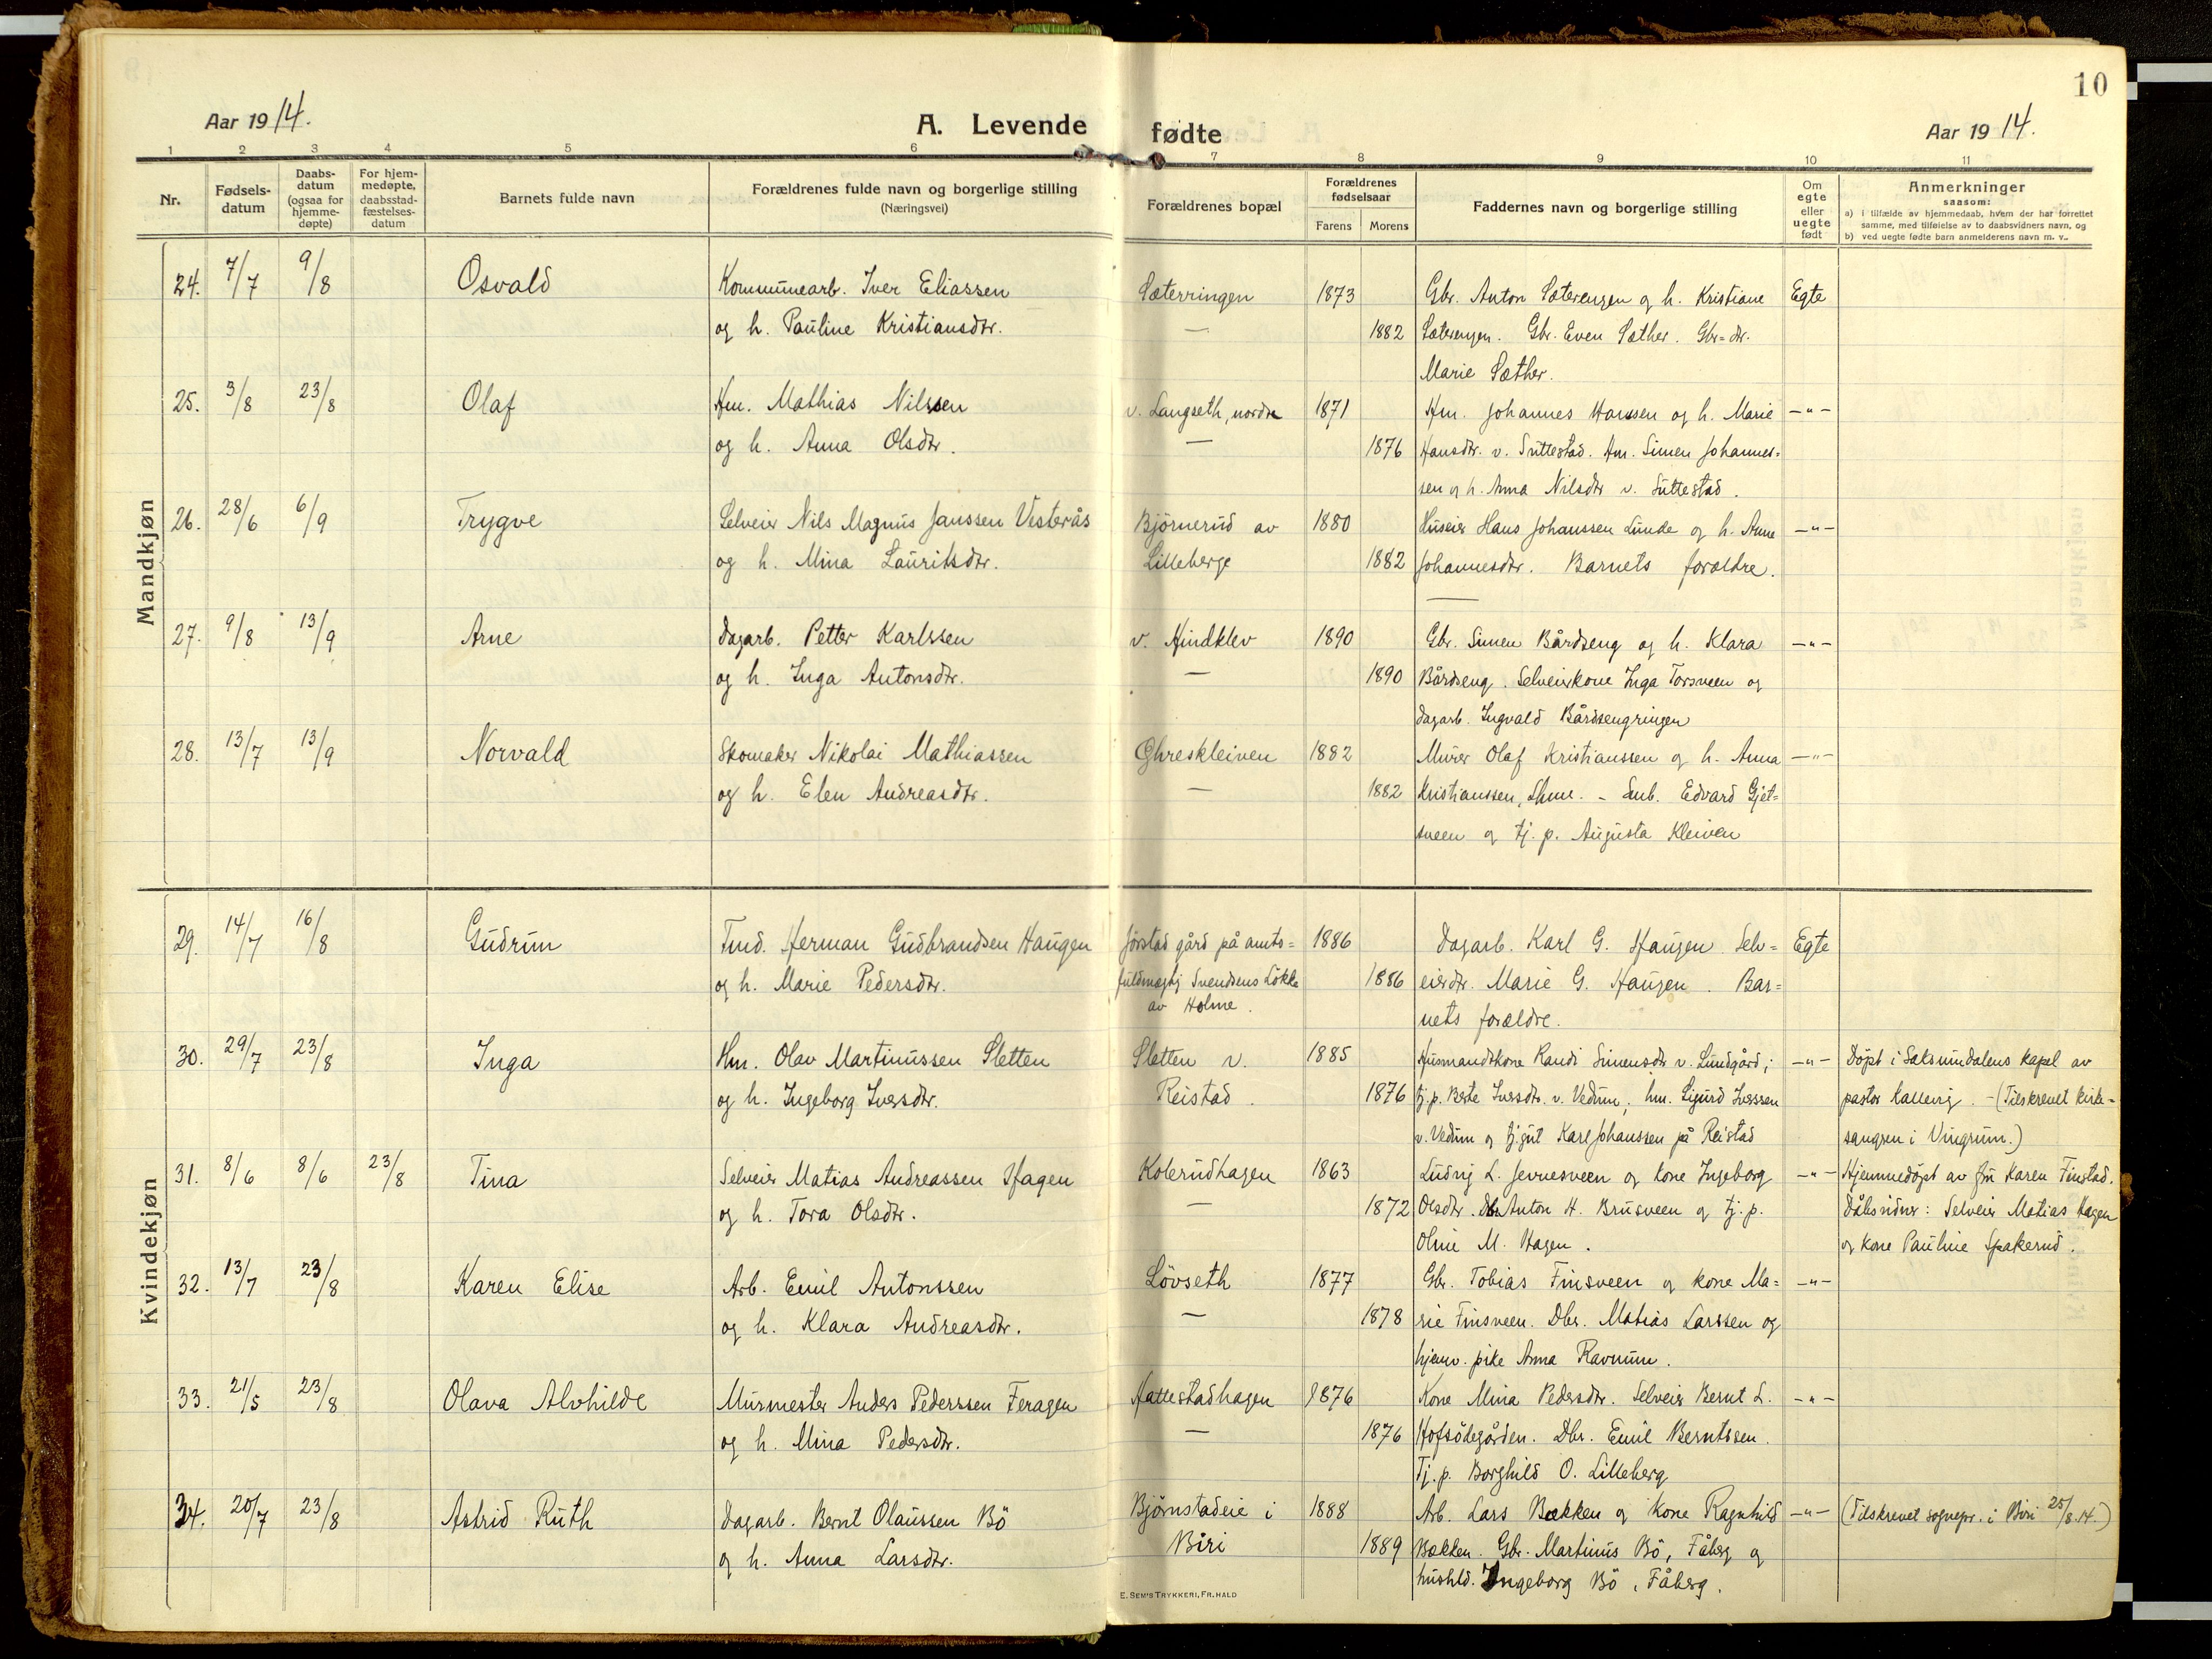 10
Aar 1914. A. Levende fødte Aar 1914.
1 2 3 4 5 6 7 8 9 10 11
Nr. | Fødsels-datum | Daabs-datum (ogsaa for hjemme-døpte) | For hjem-medøpte, daabsstad-fæstelses-datum | Barnets fulde navn | Forældrenes fulde navn og borgerlige stilling (Næringsvei) | Forældrenes bopæl | Forældrenes fødselsaar Farens Morens | Faddernes navn og borgerlige stilling | Om egte eller uegte født | Anmerkninger saasom: a) i tilfælde av hjemmedaab, hvem der har forrettet samme, med tilføielse av to daabsvidners navn, og b) ved uegte fødte barn anmelderens navn m. v.
Mandkjøn
24. 7/7 9/8 Osvald Kommunearb. Iver Eliassen Sæterringen 1873 Gbr. Anton Sæterengen og h. Kristiane Egte
og h. Pauline Kristiansdtr. — 1882 Sæterengen. Gbr. Even Sæther. Gbr=dr.
Marie Sæther.
25. 3/8 23/8 Olaf Hm. Mathias Nilssen v. Langseth, nordre 1871 Hm. Johannes Hanssen og h. Marie —"—
og h. Anna Olsdtr. — 1876 Hansdtr. v. Suttestad. Hm. Simen Johannes=
sen og h. Anna Nilsdtr v. Suttestad.
26. 28/6 6/9 Trygve Selveier Nils Magnus Janssen Vesterås Bjørnerud av 1880 Huseier Hans Johanssen Lunde og h. Anne —"—
og h. Mina Lauritsdtr. Lilleberge 1882 Johannesdtr. Barnets forældre.
27. 9/8 13/9 Arne Dagarb. Petter Karlssen v. Hindklev 1890 Gbr. Simen Bårdseng og h. Klara —"—
og h. Inga Antonsdtr. — 1890 Bårdseng. Selveierkone Inga Torsveen og
dagarb. Ingvald Bårdsengringen
28. 13/7 13/9 Norvald Skomaker Nikolai Mathiassen Ghreskleiven 1882 Murer Olaf Kristianssen og h. Anna —"—
og h. Elen Andreasdtr. — 1882 Kristianssen, Lhmr. - Smb. Edvard Gjet=
sveen og tj. p. Augusta Kleiven
Kvindekjøn
29. 14/7 16/8 Gudrun Tmd. Herman Gudbrandsen Haugen Jørstad gård på amts= 1886 Dagarb. Karl G. Haugen. Selv= Egte
og h. Marie Pedersdtr. fuldmægtig Svendsens Løkke 1886 eierdtr. Marie G. Haugen. Bar=
av Holme. nets forældre.
30. 29/7 23/8 Inga Hm. Olav Martinussen Sletten Sletten v. 1885 Husmandskone Randi Simensdtr v. Lundgård; —"— Døpt i Saksumdalens kapel av
og h. Ingeborg Iversdtr. Reistad. 1876 tj. p. Berte Iversdtr. v. Vedum; hm. Sigurd Iverssen pastor Kallevig. - (Tilskrevet kirke=
v. Vedum og tj.gut Karl Johanssen på Reistad sangren i Vingrum.)
31. 8/6 8/6 23/8 Tina Selveier Matias Andreassen Hagen Kolerudhagen 1863 Ludvig L. Jevnesveen og kone Ingeborg —"— Hjemmedøpt av fru Karen Finstad.
og h. Tora Olsdtr. — 1872 Olsdtr. Dbr. Anton H. Brusveen og tj. p. Dåbsvidner: Selveier Matias Hagen
Oline M. Hagen. og kone Pauline Spakerud.
32. 13/7 23/8 Karen Elise Arb. Emil Antonssen Løvseth 1877 Gbr. Tobias Finsveen og kone Ma= —"—
og h. Klara Andreasdtr. — 1878 rie Finsveen. Dbr. Matias Larssen og
hjemv. pike Anna Ravnum.
33. 21/5 23/8 Olava Alvhilde Murmester Anders Pederssen Feragen Hattestadhagen 1876 Kone Mina Pedersdtr. Selveier Bernt L. —"—
og h. Mina Pedersdtr. — 1876 Hofsødegården. Dbr. Emil Berntssen.
Tj. p. Borghild O. Lilleberg
34. 20/7 23/8 Astrid Ruth Dagarb. Bernt Olaussen Bö Bjørnstadeie i 1888 Arb. Lars Bækken og kone Ragnhild —"— (Tilskrevet sognepr. i Biri 25/8.14.)
og h. Anna Larsdtr. Biri 1889 Bækken. Gbr. Martinus Bö, Fåberg og
hushld. Ingeborg Bö, Fåberg.
E. SEM'S TRYKKERI, FR.HALD